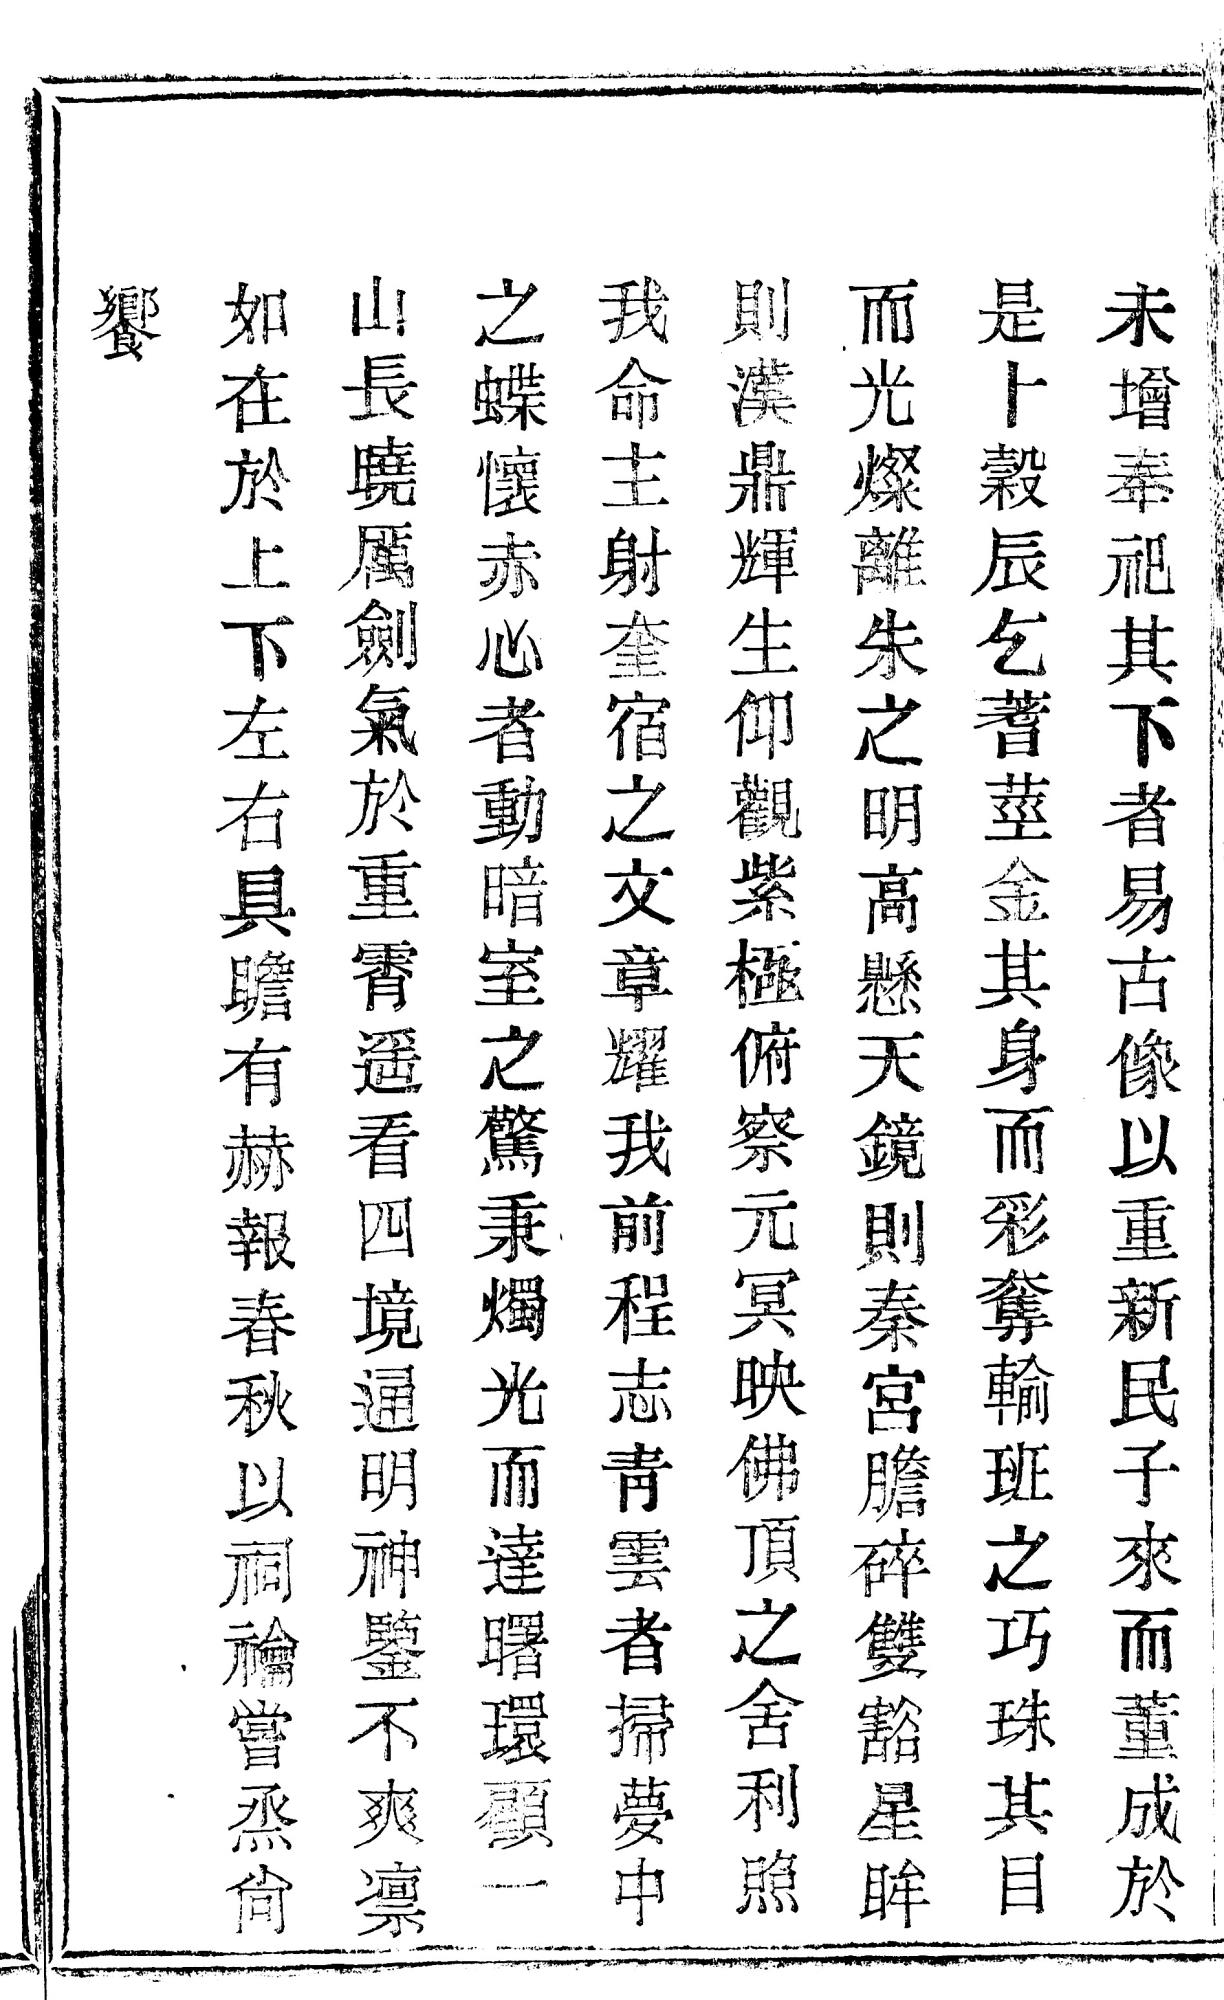 未增奉祀其下者易古像以重新民子來而董成於
是卜穀辰乞蓍莖金其身而彩奪輸班之巧珠其目
而光燦離朱之明高懸天鏡則秦宮膽碎雙豁星眸
則漢鼎輝生仰觀紫極俯察元冥映佛頂之舍利照
我命主射奎宿之文章耀我前程志青雲者掃夢中
之蝶懷赤心者動暗室之驚秉燭光而達曙環顧一
山長曉厲劍氣於重霄遥看四境通明神鑒不爽凛
如在於上下左右具瞻有赫報春秋以祠禴嘗烝尙
饗